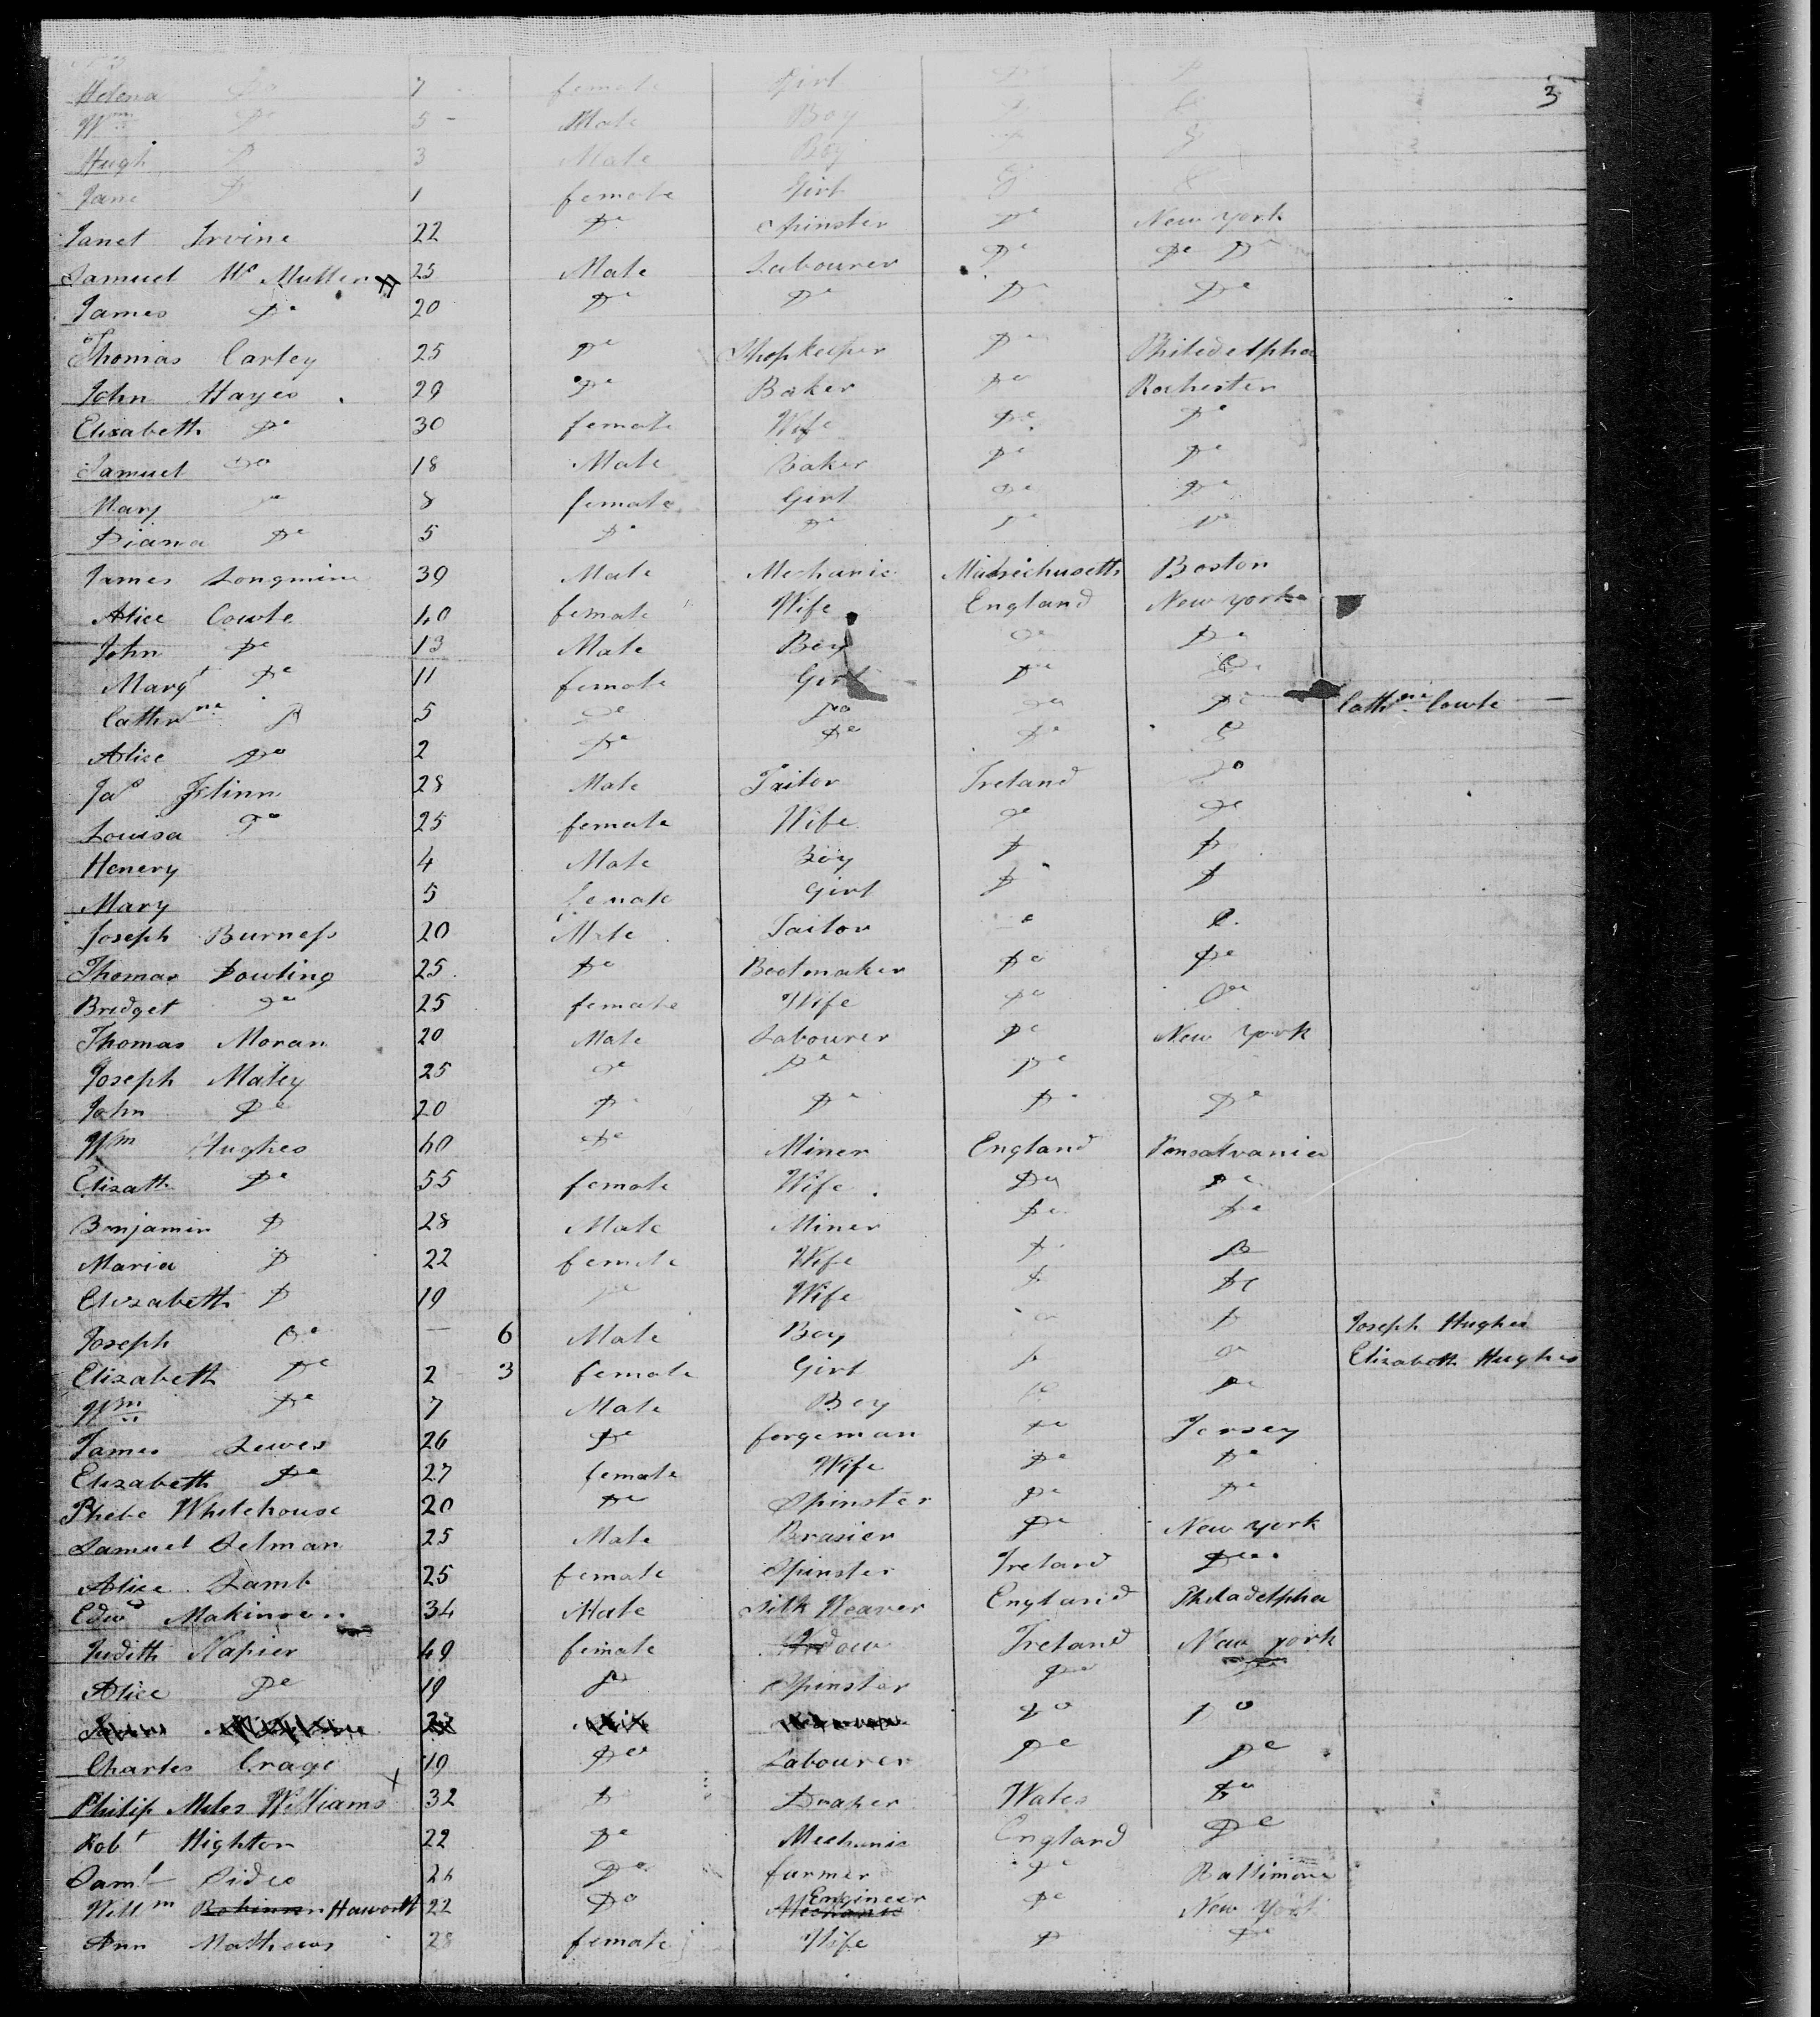 3
Helena Do 7 female Girl Do Do
Wm Do 5 Male Boy Do Do
Hugh Do 3 Male Boy Do Do
Jane Do 1 female Girl Do Do
Janet Irvine 22 Do Spinster Do New York
Samuel Mc Mullen 25 Male Labourer Do Do Do
James Do 20 Do Do Do Do
Thomas Carley 25 Do Shopkeeper Do Philedelpha
John Hayes 29 Do Baker Do Rochester
Elisabeth Do 30 female Wife Do Do
Samuel Do 18 Male Baker Do Do
Mary Do 8 female Girl Do Do
Diana Do 5 Do Do Do Do
James Longmire 39 Male Mechanic Massichusetts Boston
Alice Cowle 40 female Wife England New York
John Do 13 Male Boy Do Do
Margt Do 11 female Girl Do Do
Cathrne Do 5 Do Do Do Do Cathne Cowle
Alice Do 2 Do Do Do Do
Jas Flinn 28 Male Tailor Ireland Do
Louisa Do 25 female Wife Do Do
Henery 4 Male Boy Do Do
Mary 5 female Girl Do Do
Joseph Burness 20 Male Tailor Do Do
Thomas Dowling 25 Do Bootmaker Do Do
Bridget Do 25 female Wife Do Do
Thomas Moran 20 Male Labourer Do New York
Joseph Maley 25 Do Do Do
John Do 20 Do Do Do Do
Wm Hughes 60 Do Miner England Pensalvania
Elisath Do 55 female Wife Do Do
Benjamin Do 28 Male Miner Do Do
Maria Do 22 female Wife Do Do
Elizabeth Do 19 Do Wife Do Do
Joseph Do — 6 Male Boy Do Do Joseph Hughes
Elizabeth Do 2 3 female Girl Do Do Elizabeth Hughes
Wm Do 7 Male Boy Do Do
James Lewes 26 Do forgeman Do Jersey
Elizabeth Do 27 female Wife Do Do
Phebe Whitehouse 20 Do Spinster Do Do
Samuel Selman 25 Male Brasier Do New York
Alice Lamb 25 female Spinster Ireland Do
Edwd Makinson 34 Male Silk Weaver England Philadelpha
Judith Napier 49 female Widow Ireland New York
Alice Do 19 Do Spinster Do Do
Do Do
Charles Crage 19 Do Labourer Do Do
Philip Miles Williams 32 Do Draper Wales Do
Robt Highton 22 Do Mechanic England Do
Saml Sides 26 Do farmer Do Baltimore
Willm Robinson Haworth 22 Do Mechanic Engineer Do New York
Ann Mathews 28 female Wife Do Do